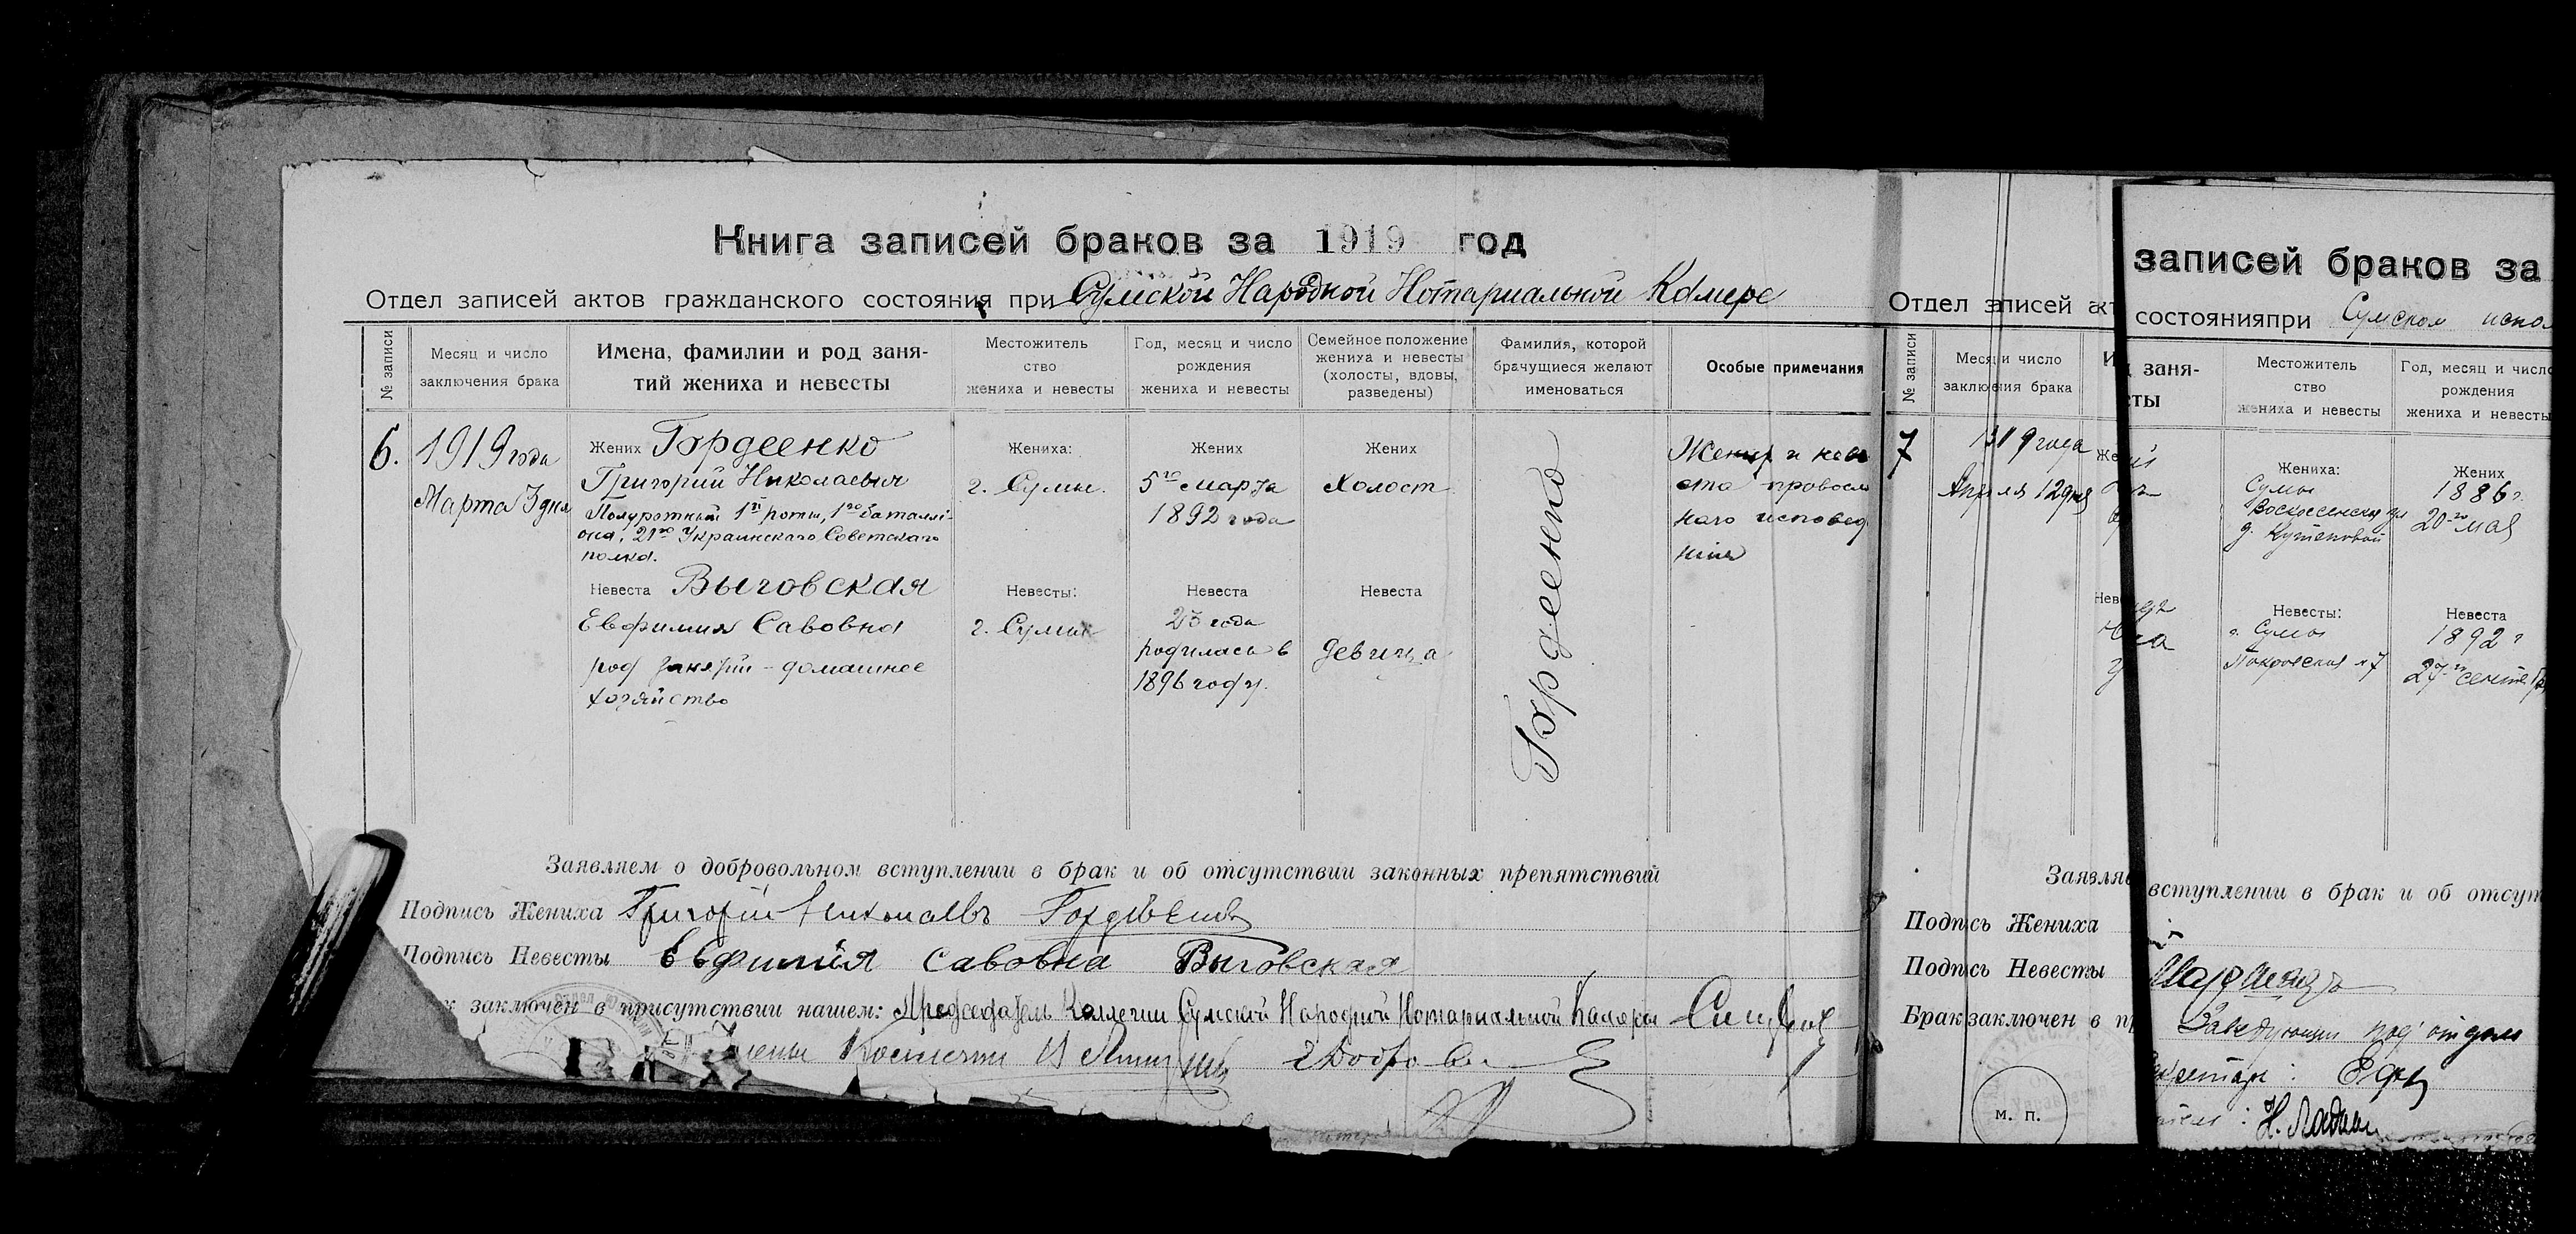 Книга записей браков за 1919 год
Отдел записей актов гражданского состояния при Сумской Народной Нотариальной Камере
№ записи
Месяц и число
заключения брака
Имена, фамилии и род заня-
тий жениха и невесты
Местожитель
ство
жениха и невесты
Год, месяц и число
рождения
жениха и невесты
Семейное положение
жениха и невесты
(холосты, вдовы,
разведены)
Фамилия, которой
брачущиеся желают
именоваться
Особые примечания
6.
1919 года
Марта 3 дня
Жених Гордеенко
Григорий Николаевич
Полуротный 1й роты, 1го баталлi-
она, 21го Украинскаго Советскаго
полка.
Невеста Выговская
Евфимия Савовна
род занятий - домашнее
хозяйство
Жениха:
г. Сумы.
Невесты:
г. Сумы
Жених
5го марта
1892 года
Невеста
23 года
родилась в
1896 году.
Жених
Холост
Невеста
девица
Гордеенко
Жених и неве
ста правосла
наго исповед
ния
Заявляем о добровольном вступлении в брак и об отсутствии законных препятствий
Подпись Жениха Григорій Гордѣенко
Подпись Невесты Евфимія Савовна Выговская
заключен в присутствии нашем: Председатель Коллегии Сумской Народной Нотариальной Камеры
Отдел записей акт
№ записи
Месяц и число
заключения брака
7
1919 года
Апреля 12 дня
Заявляе
Подпись Жениха
Подпись Невесты
Брак заключен в пр
м. п.
записей браков за
состояния при Сумском испо
заня-
ты
Местожитель
ство
жениха и невесты
Год, месяц и число
рождения
жениха и невесты
Жениха:
Сумы
Воскресенская ул
Невесты:
г. Сумы
Покровская № 7
Жених
1886 г.
20го мая
Невеста
1892 г
27го сентяб
вступлении в брак и об отсут
Заведующий подотделом